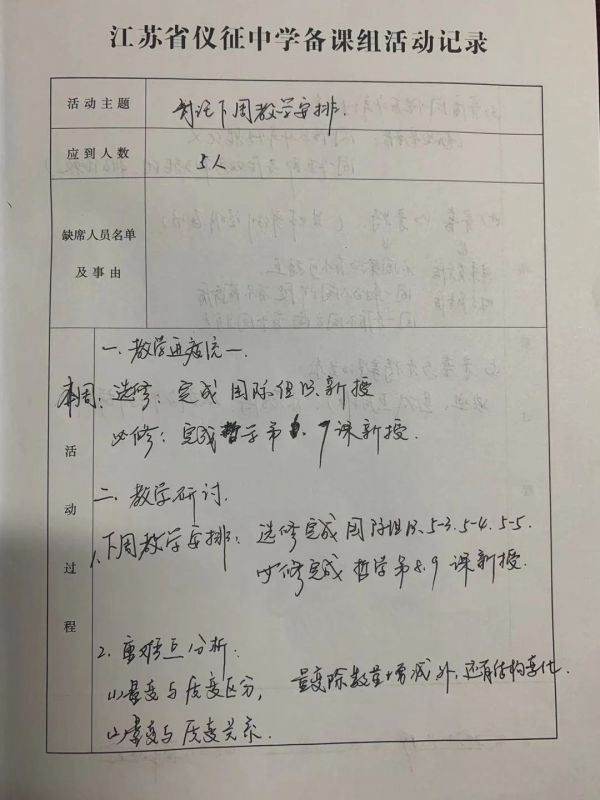 江苏省仪征中学备课组活动记录
活动主题
讨论下周教学安排.
应到人数
5人
缺席人员名单
及事由
活动过程
一. 教学进度统一.
本周: 选修: 完成 国际组织 新授
必修: 完成 哲学第 9课新授.
二. 教学研讨.
1. 下周教学安排: 选修完成 国际组织 5-3. 5-4. 5-5.
必修完成 哲学第8.9 课新授.
2. 重难点分析:
(1) 量变与质变区分, 量变除数量增减外,还有结构变化.
(2) 量变与质变关系.